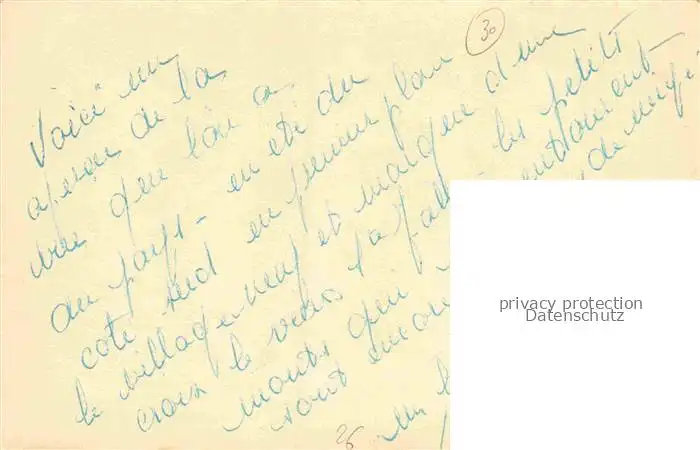 30
Voici un
aperçu de la
vue que l'on a
au pays - en été du
coté sud en premier plan
le village neuf et marqué d'une
croix le vieux les petits
monts qui entourent
sont encore de neige
un
26
privacy protection
Datenschutz